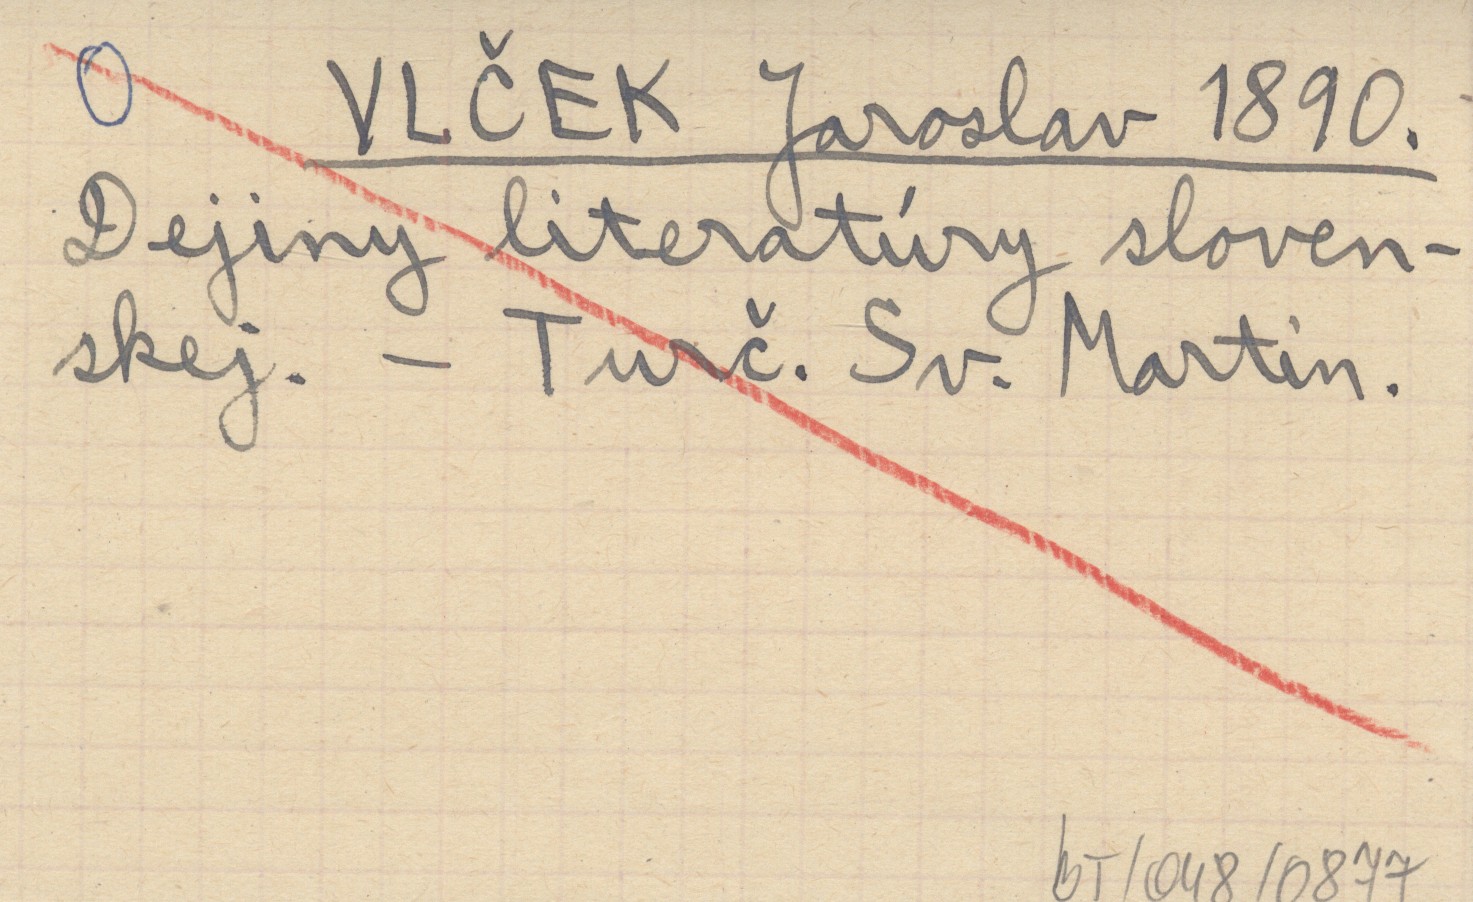 O VLČEK Jaroslav 1890.
Dejiny literatúry sloven-
skej. – Turč. Sv. Martin.
bT/048/0877